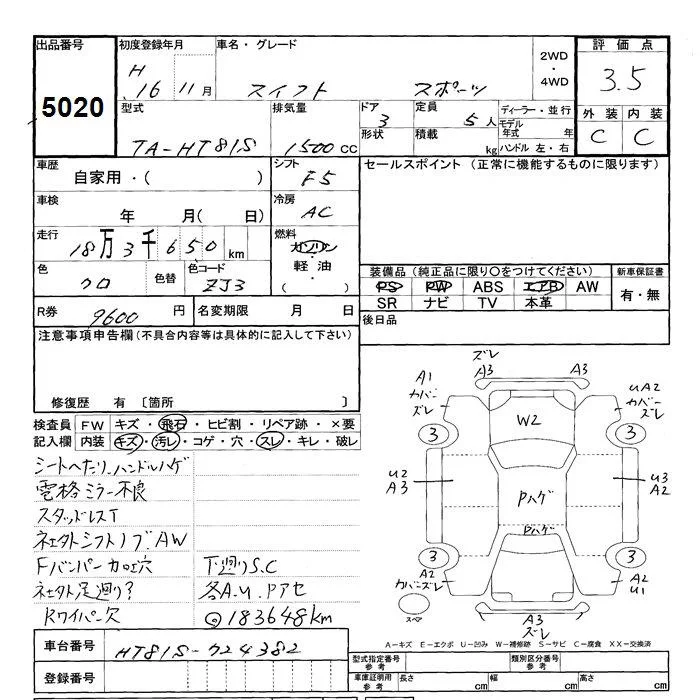 出品番号 初度登録年月 車名・グレード 2WD・4WD 評価点
5020 H 16 11月 スイフト スポーツ 3.5
型式 排気量 ドア 定員 ディーラー・並行 外装 内装
TA-HT81S 1500cc 3 5人 モデル年式 年 C C
形状 積載 kg ハンドル 左・右
車歴 シフト セールスポイント (正常に機能するものに限ります)
自家用・( ) F5
車検 冷房
年 月( 日) AC
走行 燃料
18万3千650km ガソリン
軽油
( )
色 色替 色コード 装備品(純正品に限り〇をつけてください) 新車保証書
クロ ZJ3 PS PW ABS エアB AW 有・無
SR ナビ TV 本革
R券 9600円 名変期限 月 日 後日品
注意事項申告欄(不具合内容等は具体的に記入して下さい)
修復歴 有 〔箇所 〕
検査員 FW キズ・飛石・ヒビ割・リペア跡・×要
記入欄 内装 キズ・汚レ・コゲ・穴・スレ・キレ・破レ
シートヘたり、ハンドルハゲ
電格ミラー不良
スタッドレスT
社外シフトノブ、AW
Fバンパー加工穴 下廻りS.C
社外足廻り? 各A.U.Pアセ
Rワイパー欠 ◎183648km
車台番号 HT81S-724382
登録番号
ズレ
A3 A3
A1
カバーズレ
UA2
カバーズレ
W2
3 3
U2
A3
Pハゲ
U3
A2
Pハゲ
3 3
A2
カバーズレ
A2
U1
スペア
A3
ズレ
A-キズ E-エクボ U-凹み W-補修跡 S-サビ C-腐食 XX-交換済
型式指定番号 参考 類別区分番号 参考
車庫証明用 参考 長さ cm 幅 cm 高さ cm